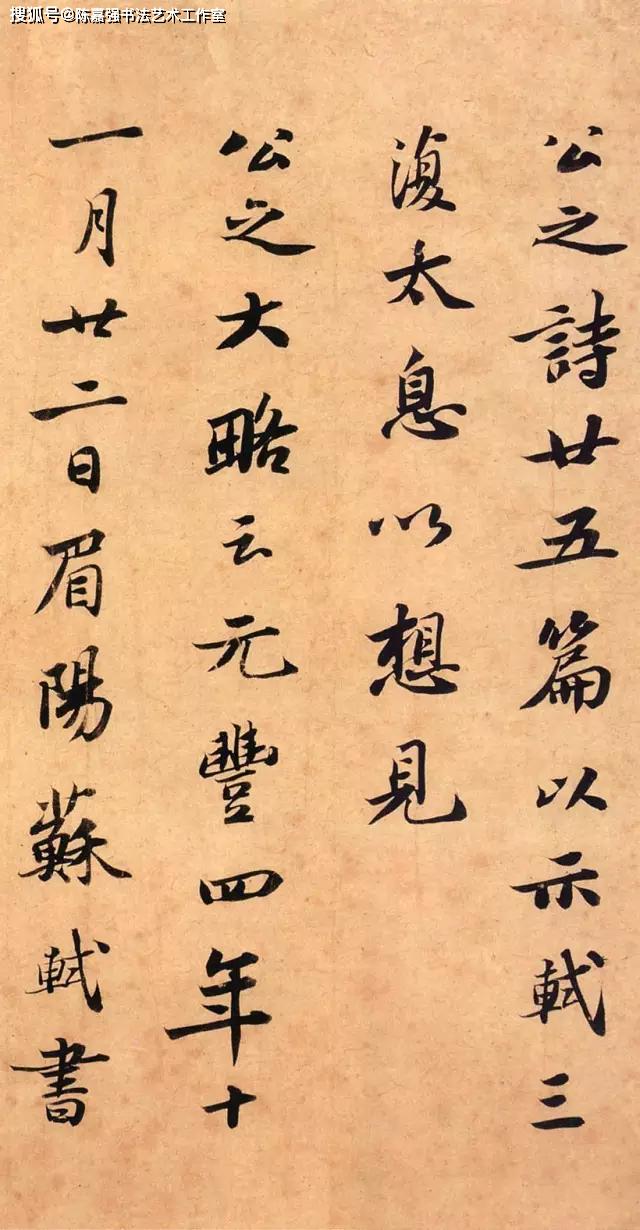 搜狐号@陈嘉强书法艺术工作室
公之詩廿五篇以示軾三
復太息以想見
公之大略云元豐四年十
一月廿二日眉陽蘇軾書